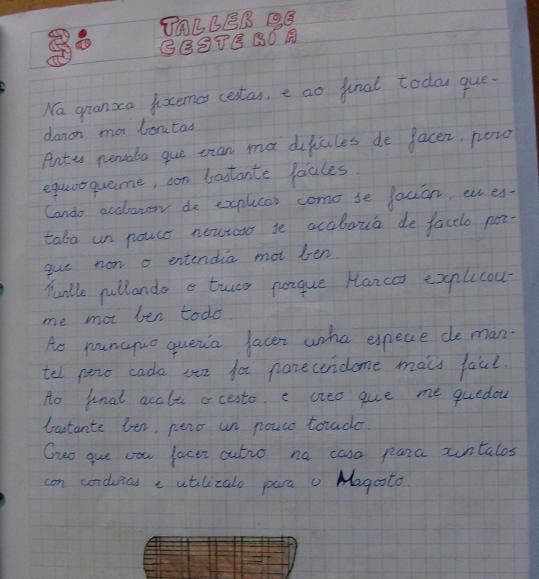 3: TALLER DE
CESTERÍA
Na granxa fixemos cestas, e ao final todas que-
daron moi bonitas.
Antes pensaba que eran moi difíciles de facer, pero
equivoqueime, son bastante fáciles.
Cando acabaron de explicar como se facían, eu es-
taba un pouco nervioso se acabaría de facelo por-
que non o entendía moi ben.
Funlle pillando o truco porque Marcos explicou-
me moi ben todo.
Ao principio quería facer unha especie de man-
tel pero cada vez foi parecéndome máis fácil.
Ao final acabei o cesto, e creo que me quedou
bastante ben, pero un pouco torcido.
Creo que vou facer outro na casa para xuntalos
con cordiñas e utilizalo para o Magosto.